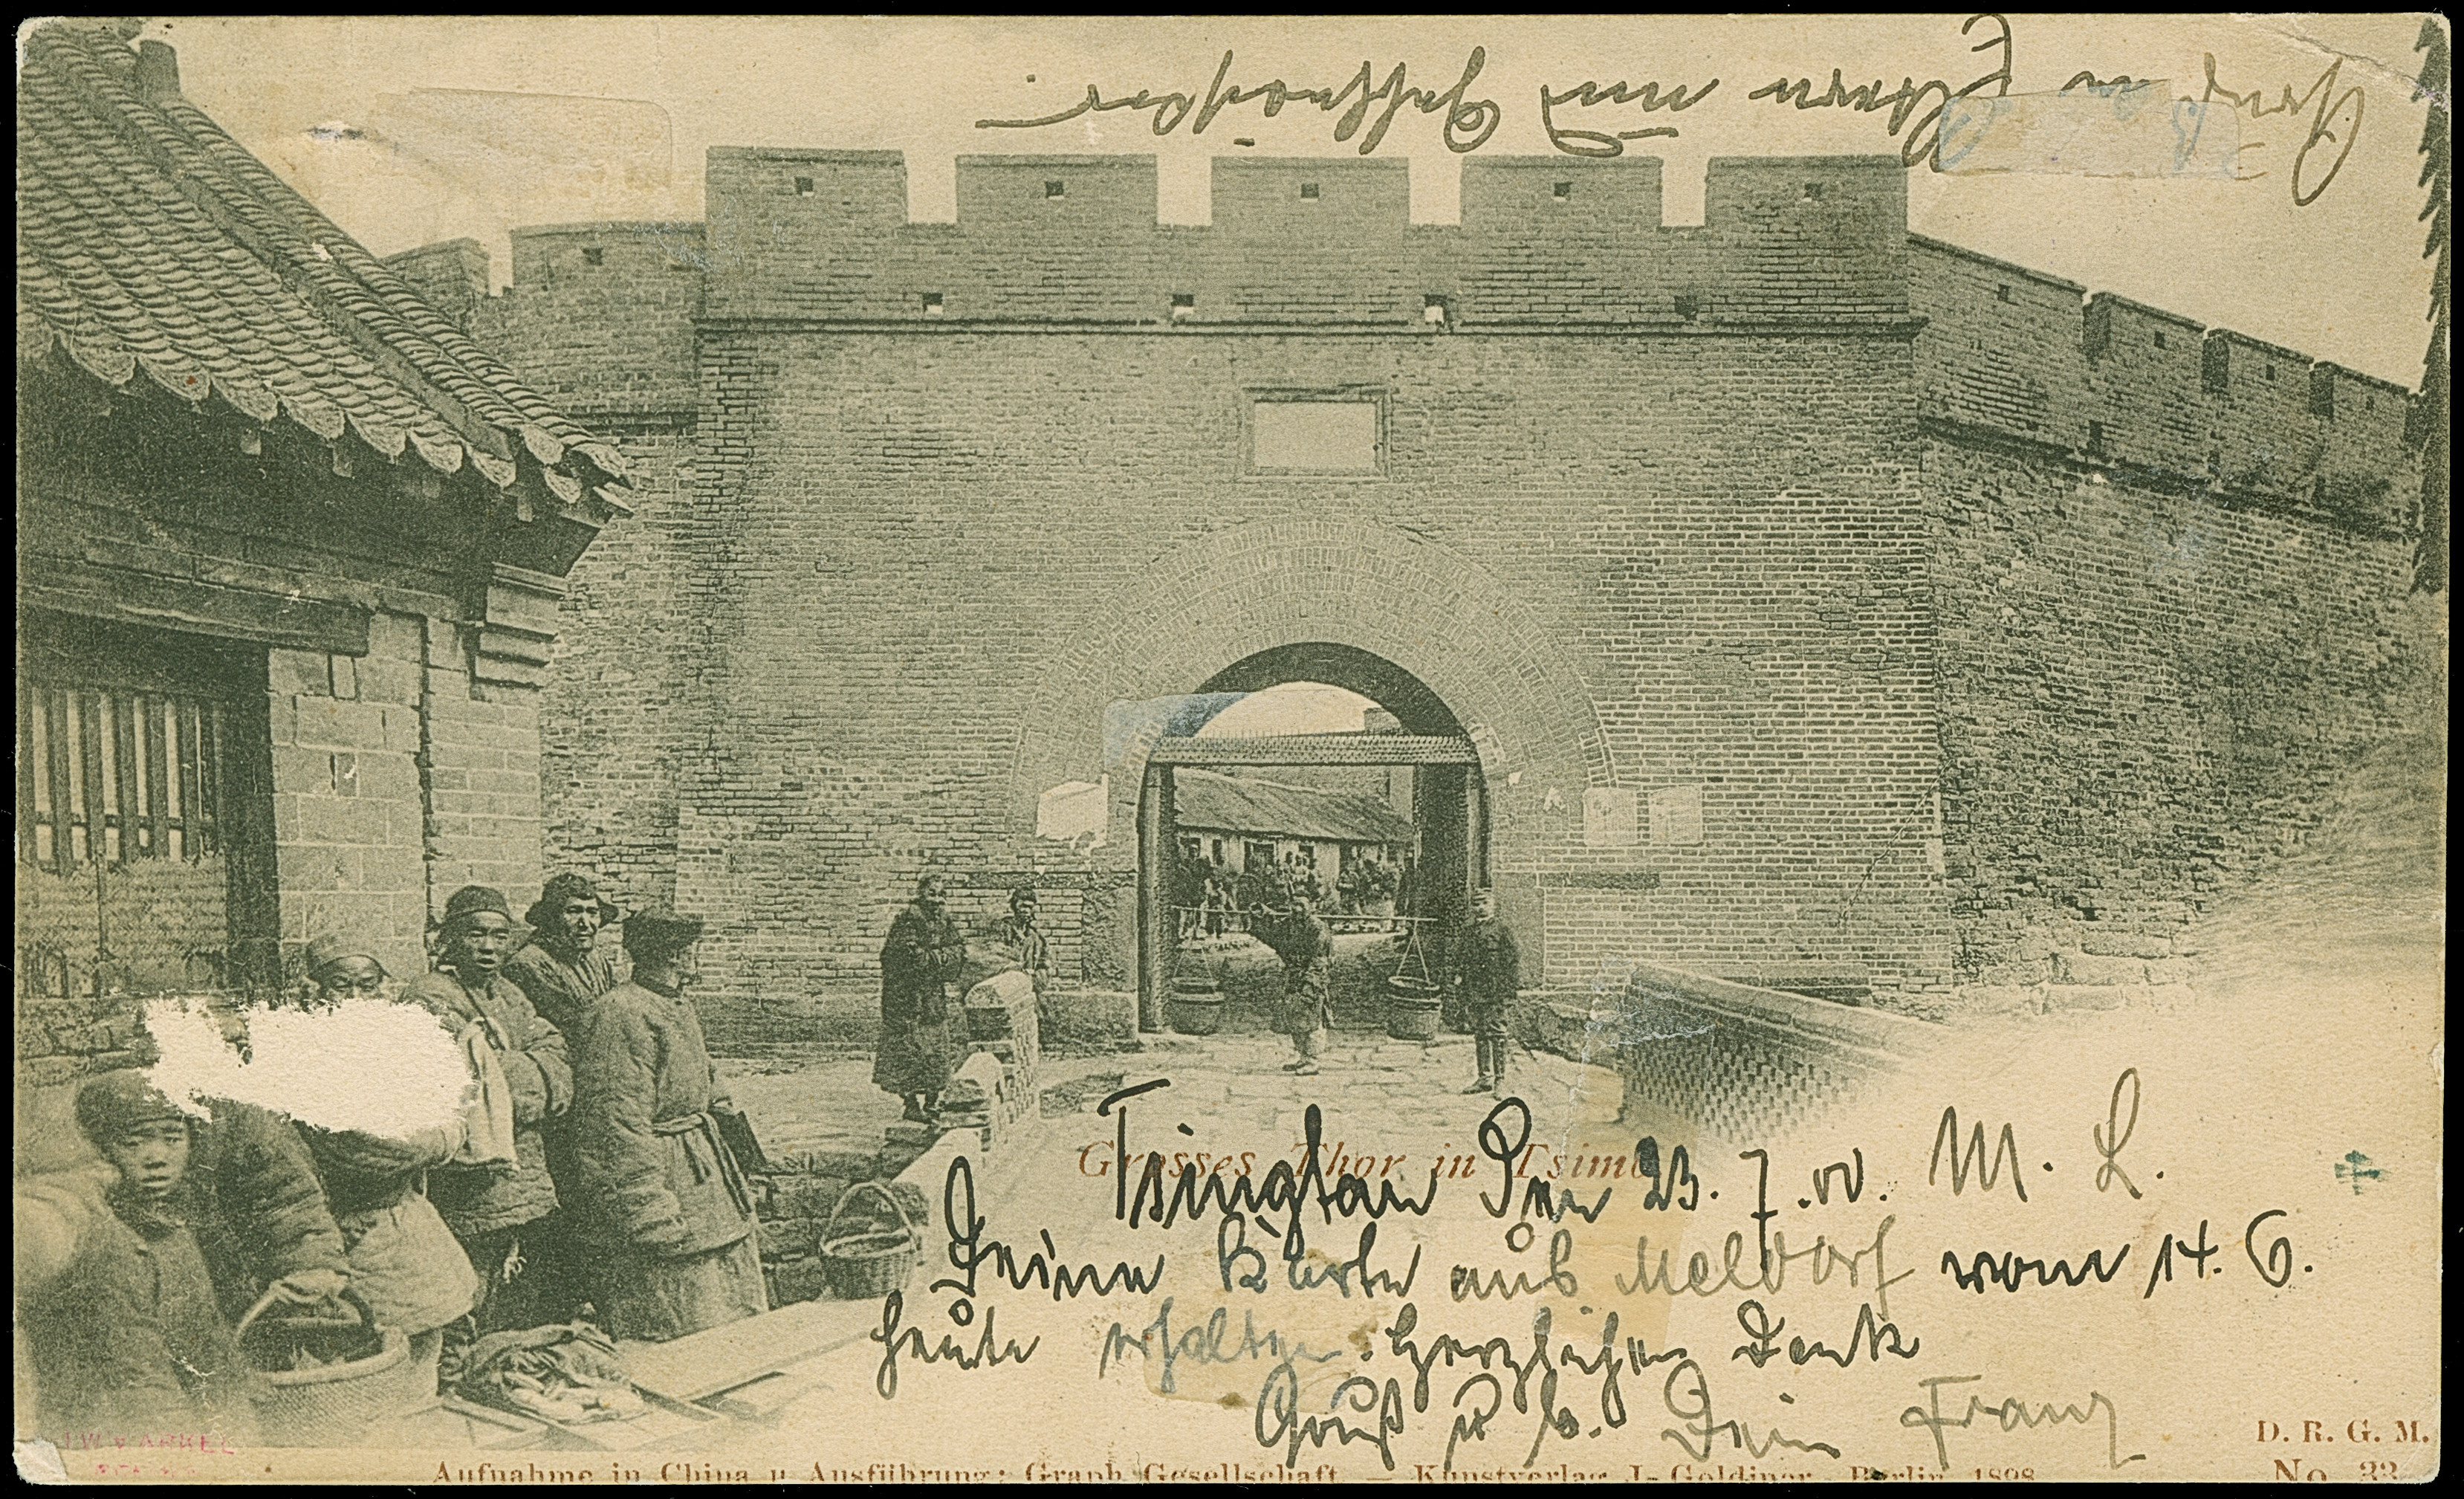 Gruß an Eltern und Geschwister
Grosses Thor in Tsimo
Tsingtau Den 23. 7. 00. M. L.
Deine Karte aus Meldorf vom 14. 6.
heute erhalten. Herzlichen Dank
Gruß u k. Dein Franz
D. R. G. M.
Aufnahme in China u. Ausführung: Graph. Gesellschaft. — Kunstverlag J. Goldiner, Berlin, 1898
No. 33